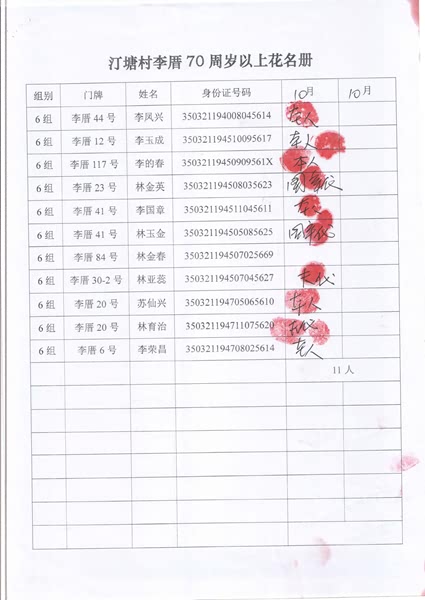 汀塘村李厝 70 周岁以上花名册
组别 门牌 姓名 身份证号码 10月 10月
6 组 李厝 44 号 李凤兴 350321194008045614 本人
6 组 李厝 12 号 李玉成 350321194510095617 本人
6 组 李厝 117 号 李的春 35032119450909561X 本人
6 组 李厝 23 号 林金英 350321194508035623
6 组 李厝 41 号 李国章 350321194511045611
6 组 李厝 41 号 林玉金 350321194505085625
6 组 李厝 84 号 林金春 350321194507025669
6 组 李厝 30-2 号 林亚蕊 350321194507045627 夫代
6 组 李厝 20 号 苏仙兴 350321194705065610 本人
6 组 李厝 20 号 林育治 350321194711075620
6 组 李厝 6 号 李荣昌 350321194708025614 本人
11 人